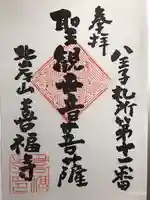 奉拝
八王子札所第十一番
聖観世音菩薩
北岸山
喜福寺